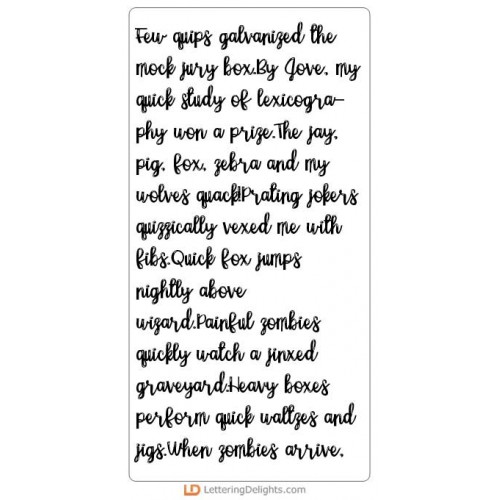 Few quips galvanized the
mock jury box.By Jove, my
quick study of lexicogra-
phy won a prize.The jay,
pig, fox, zebra and my
wolves quack!Prating jokers
quizzically vexed me with
fibs.Quick fox jumps
nightly above
wizard.Painful zombies
quickly watch a jinxed
graveyard.Heavy boxes
perform quick waltzes and
jigs.When zombies arrive,
LD LetteringDelights.com